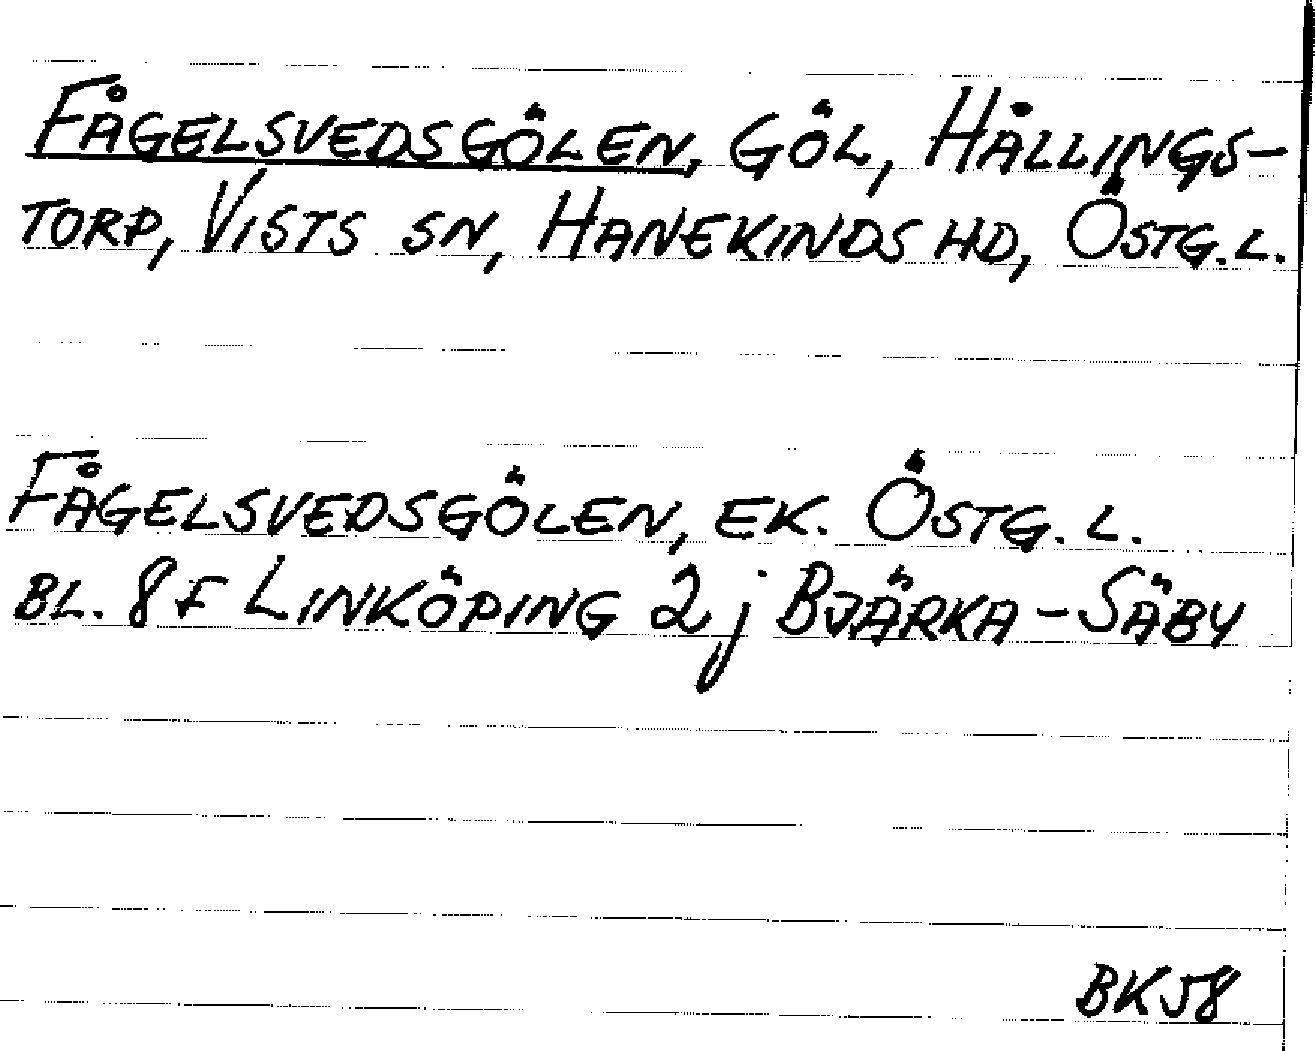 FÅGELSVEDSGÖLEN, GÖL, HÅLLINGS-
TORP, VISTS SN, HANEKINDS HD, ÖSTG.L.
FÅGELSVEDSGÖLEN, EK. ÖSTG.L.
BL. 8F LINKÖPING 2j BJÄRKA-SÄBY
BK58